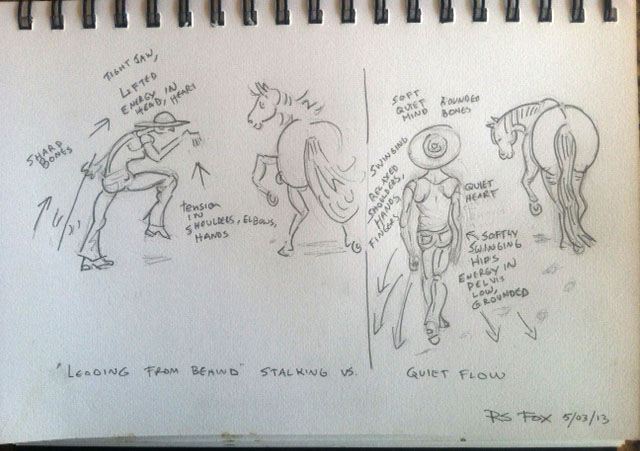 TIGHT JAW,
LIFTED
ENERGY IN
HEAD, HEART
SHARP
BONES
TENSION
IN
SHOULDERS, ELBOWS,
HANDS
SOFT
QUIET
MIND
ROUNDED
BONES
SWINGING
RELAXED
SHOULDERS,
HANDS
FINGERS
QUIET
HEART
SOFTLY
SWINGING
HIPS
ENERGY IN
PELVIS
LOW,
GROUNDED
"LEADING FROM BEHIND" STALKING VS. QUIET FLOW
RS FOX 5/03/13